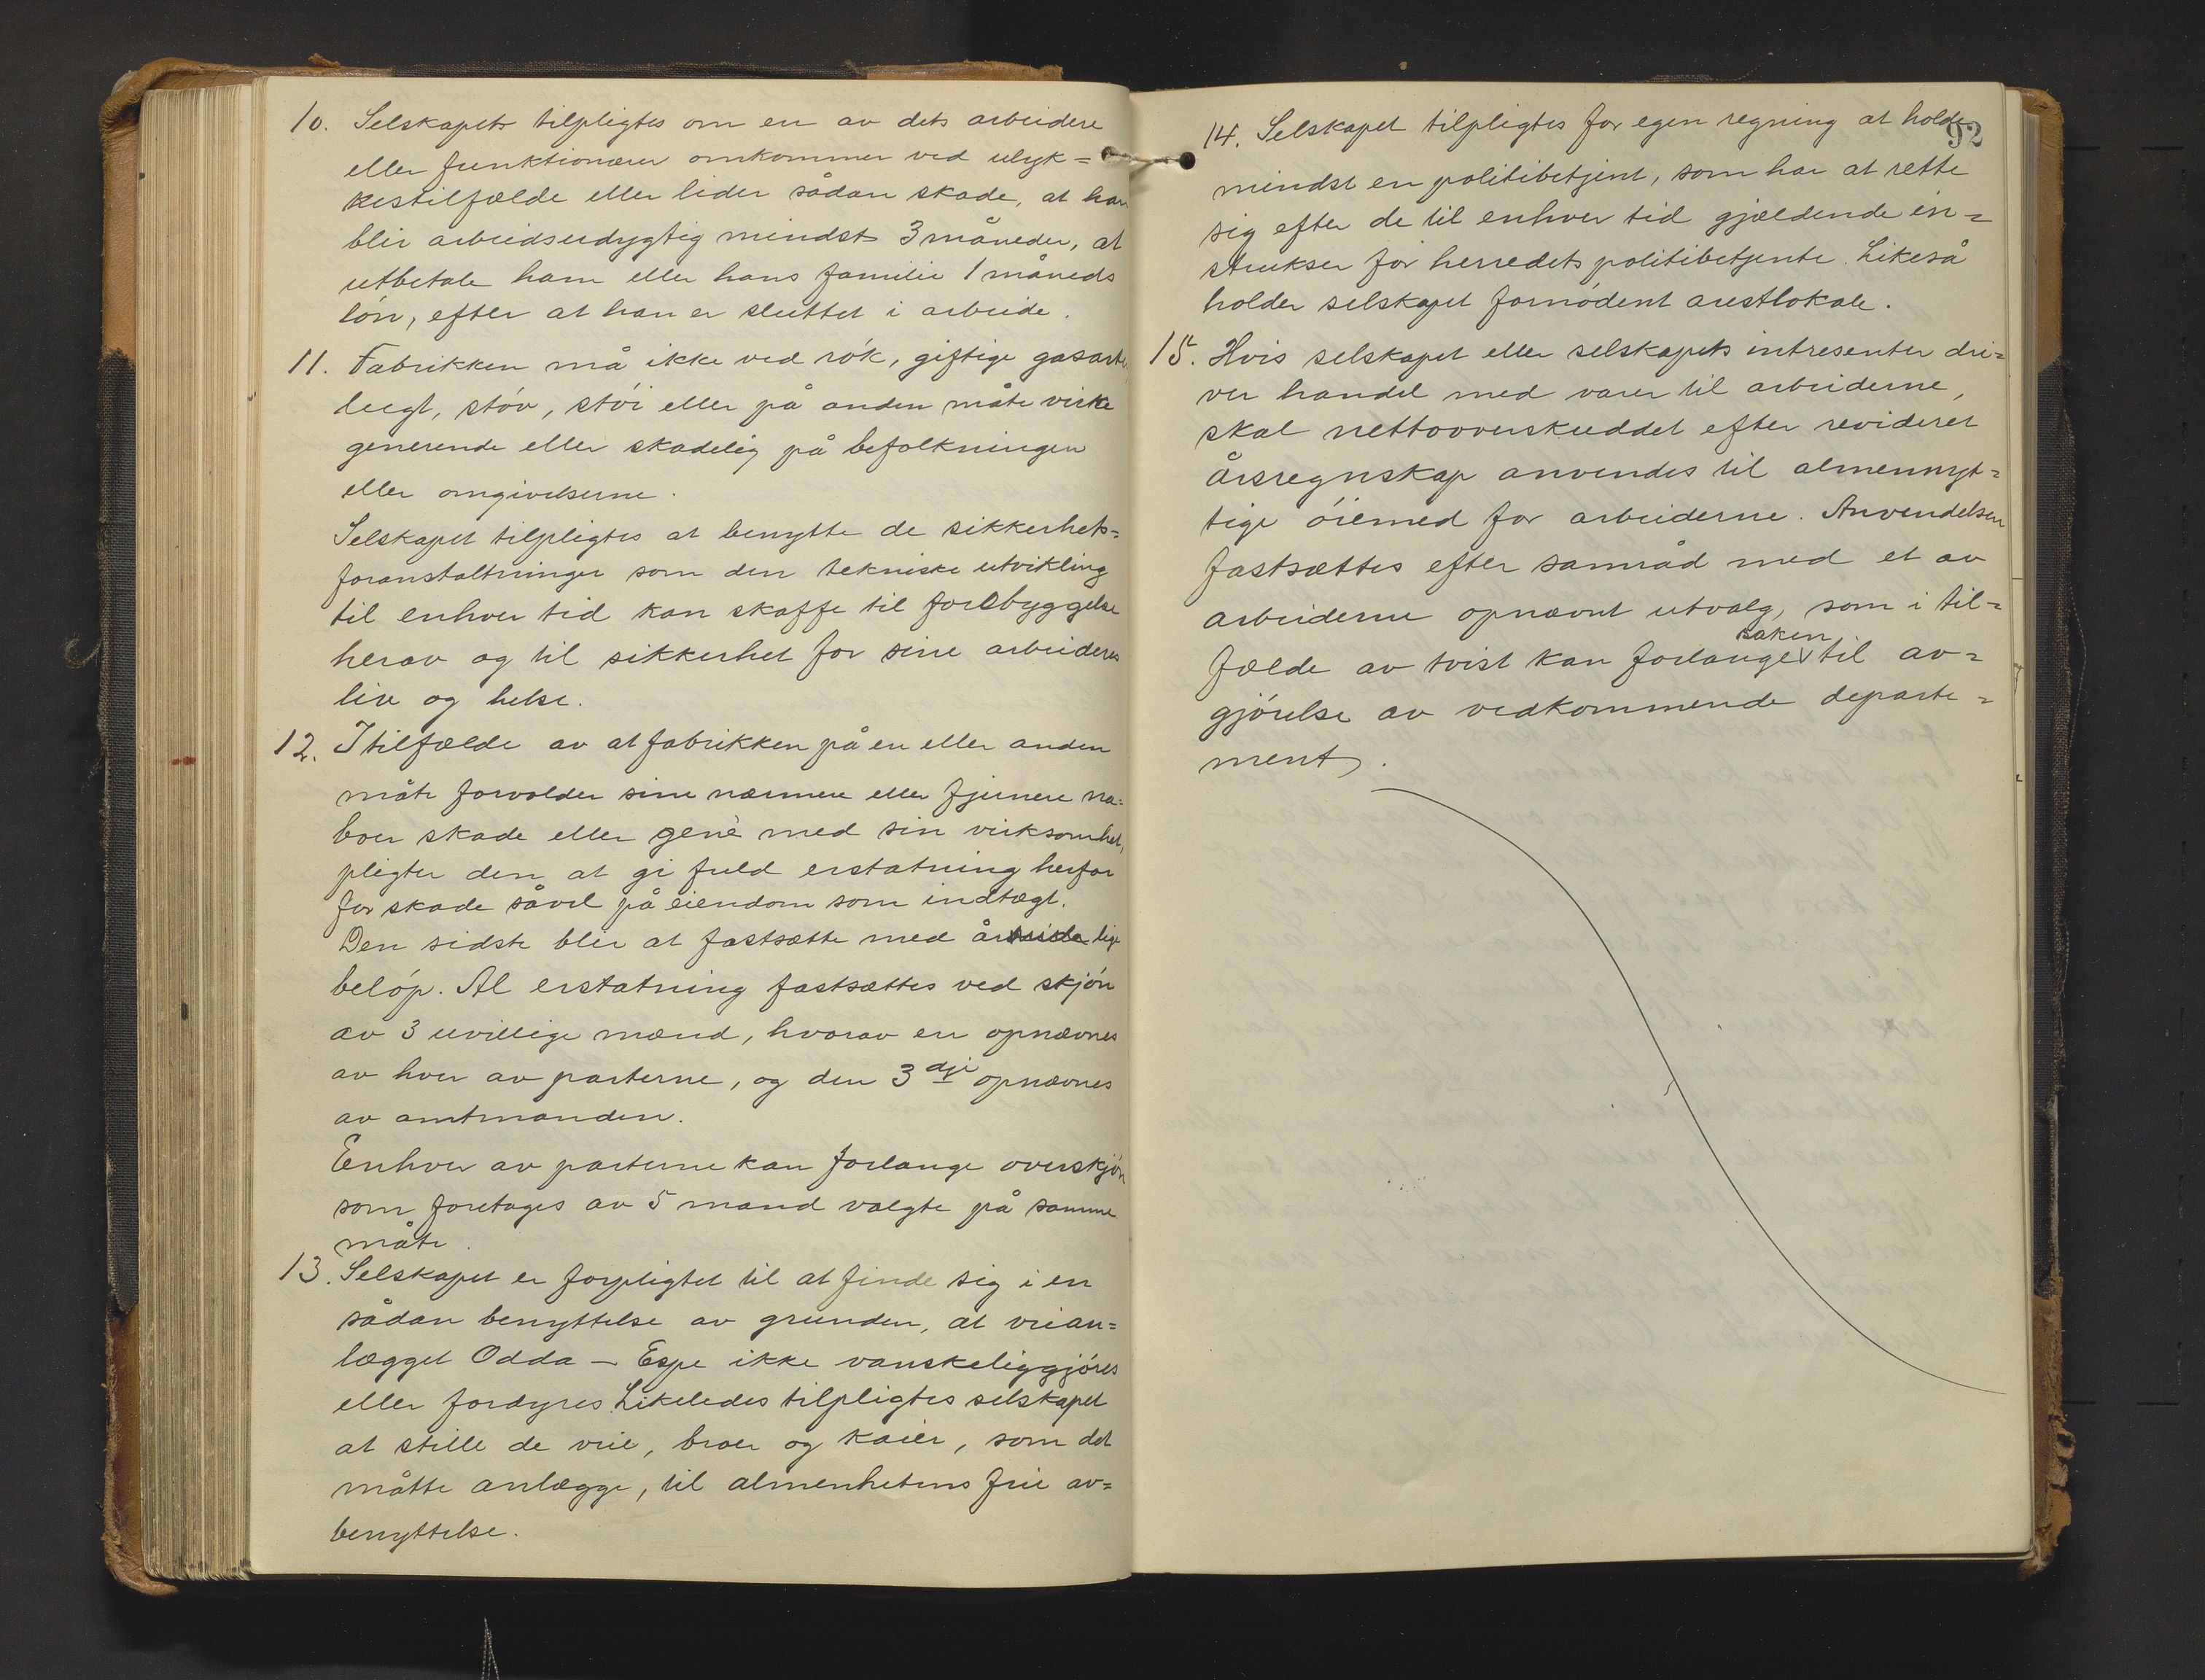 10. Selskapets tilpligtes om en av dets arbeidere
eller funktionærer omkommer ved ulyk=
kestilfælde eller lider sådan skade, at han
blir arbeidsudygtig mindst 3 måneder, at
utbetale ham eller hans familie 1 måneds
lón, efter at han er sluttet i arbeide.
11. Fabrikken må ikke ved rók, giftige gasarter,
lugt, stóv, stói eller på anden måte virke
generende eller skadelig på befolkningen
eller omgivelserne.
Selskapet tilpligtes at benytte de sikkerhets=
foranstaltninger som den tekniske utvikling
til enhver tid kan skaffe til forebyggelse
herav og til sikkerhet for sine arbeideres
liv og helse.
12. I tilfælde av at fabrikken på en eller anden
måte forvolder sine nærmere eller fjernere na=
boer skade eller genè med sin virksomhet,
pligter den at gi fuld erstatning herfor
for skade såvel på eiendom som indtægt.
Den sidste blir at fastsætte med årlige
belóp. Al erstatning fastsættes ved skjón
av 3 uvillige mænd, hvorav en opnævnes
av hver av parterne, og den 3dje opnævnes
av amtmanden.
Enhver av parterne kan forlange overskjón
som foretages av 5 mand valgte på samme
måte.
13. Selskapet er forpligtet til at finde sig i en
sådan benyttelse av grunden, at veian=
lægget Odda – Espe ikke vanskeliggjóres
eller fordyres. Likeledes tilpligtes selskapet
at stille de veie, broer og kaier, som det
måtte anlægge, til almenhetens frie av=
benyttelse.
92
14. Selskapet tilpligtes for egen regning at holde
mindst en politibetjent, som har at rette
sig efter de til enhver tid gjældende in=
strukser for herredets politibetjente. Likeså
holder selskapet fornódent arestlokale.
15. Hvis selskapet eller selskapets intresenter dri=
ver handel med varer til arbeiderne,
skal nettooverskuddet efter revideret
årsregnskap anvendes til almennyt=
tige óiemed for arbeiderne. Anvendelsen
fastsættes efter samråd med et av
arbeiderne opnævnt utvalg, som i til=
fælde av tvist kan forlange saken til av=
gjórelse av vedkommende departe=
ment.